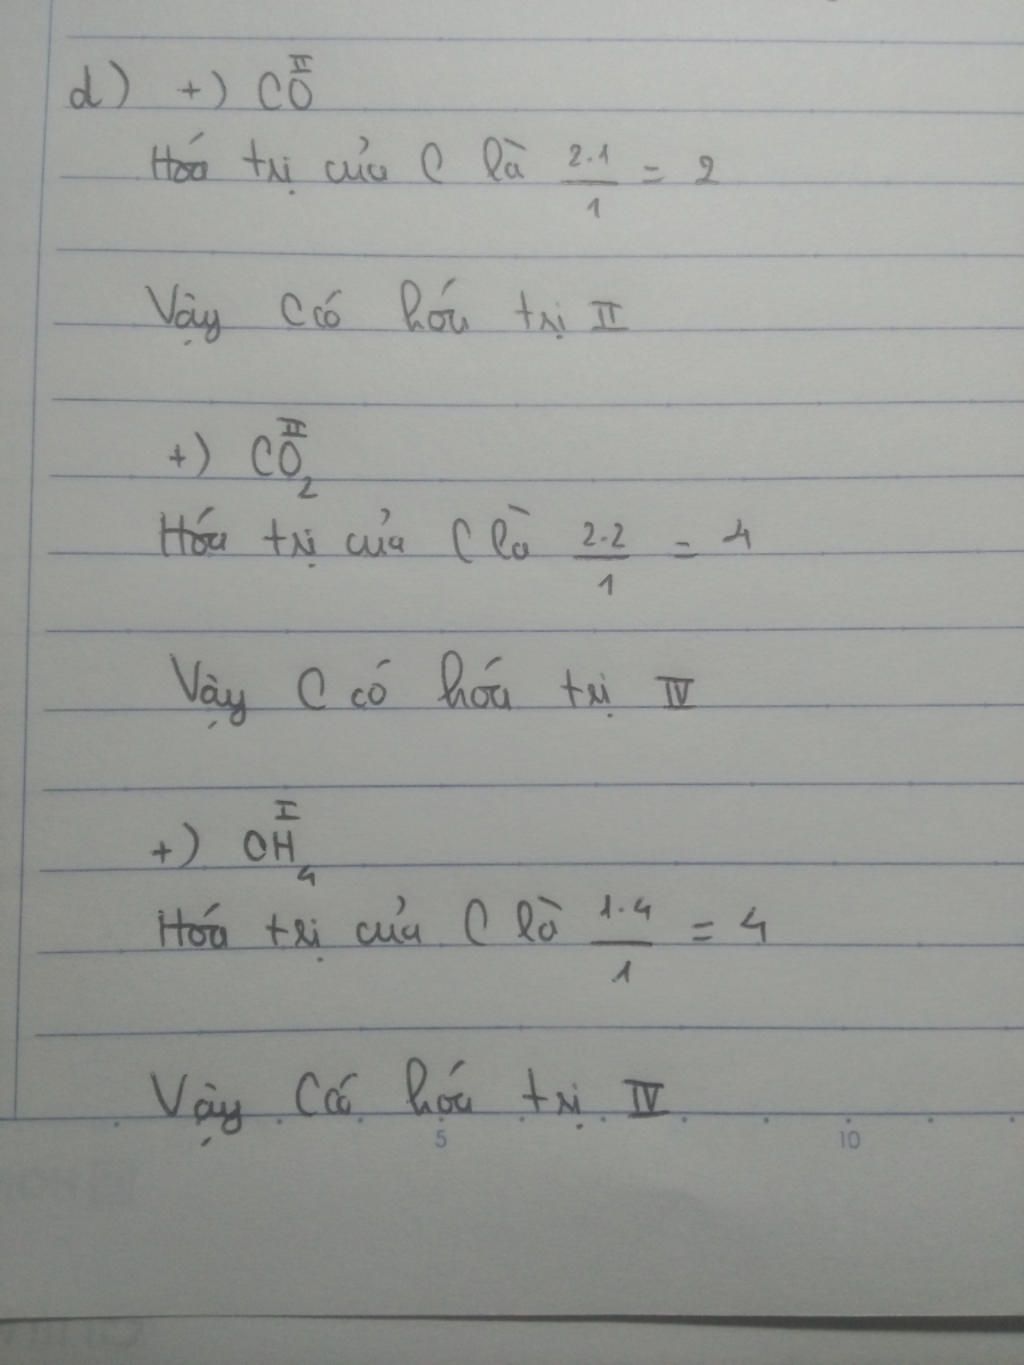 d) +) CO^II
Hóa trị của C là 2.1/1 = 2
Vậy C có hóa trị II
+) CO^II_2
Hóa trị của C là 2.2/1 = 4
Vậy C có hóa trị IV
+) CH^I_4
Hóa trị của C là 1.4/1 = 4
Vậy C có hóa trị IV
5 10